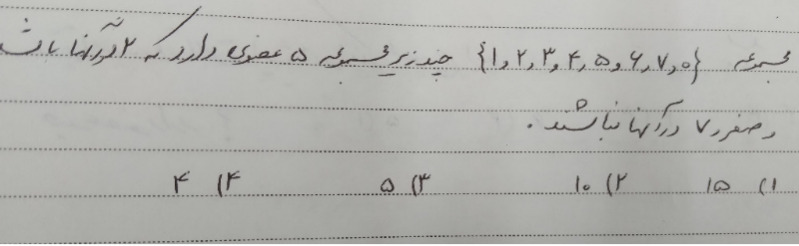 مجموعه {۱,۲,۳,۴,۵,۶,۷,۰} چند زیر مجموعه ۵ عضوی دارد که ۲ در آنها باشد
و صفر و ۷ در آنها نباشند.
۱) ۱۵ ۲) ۱۰ ۳) ۵ ۴) ۴